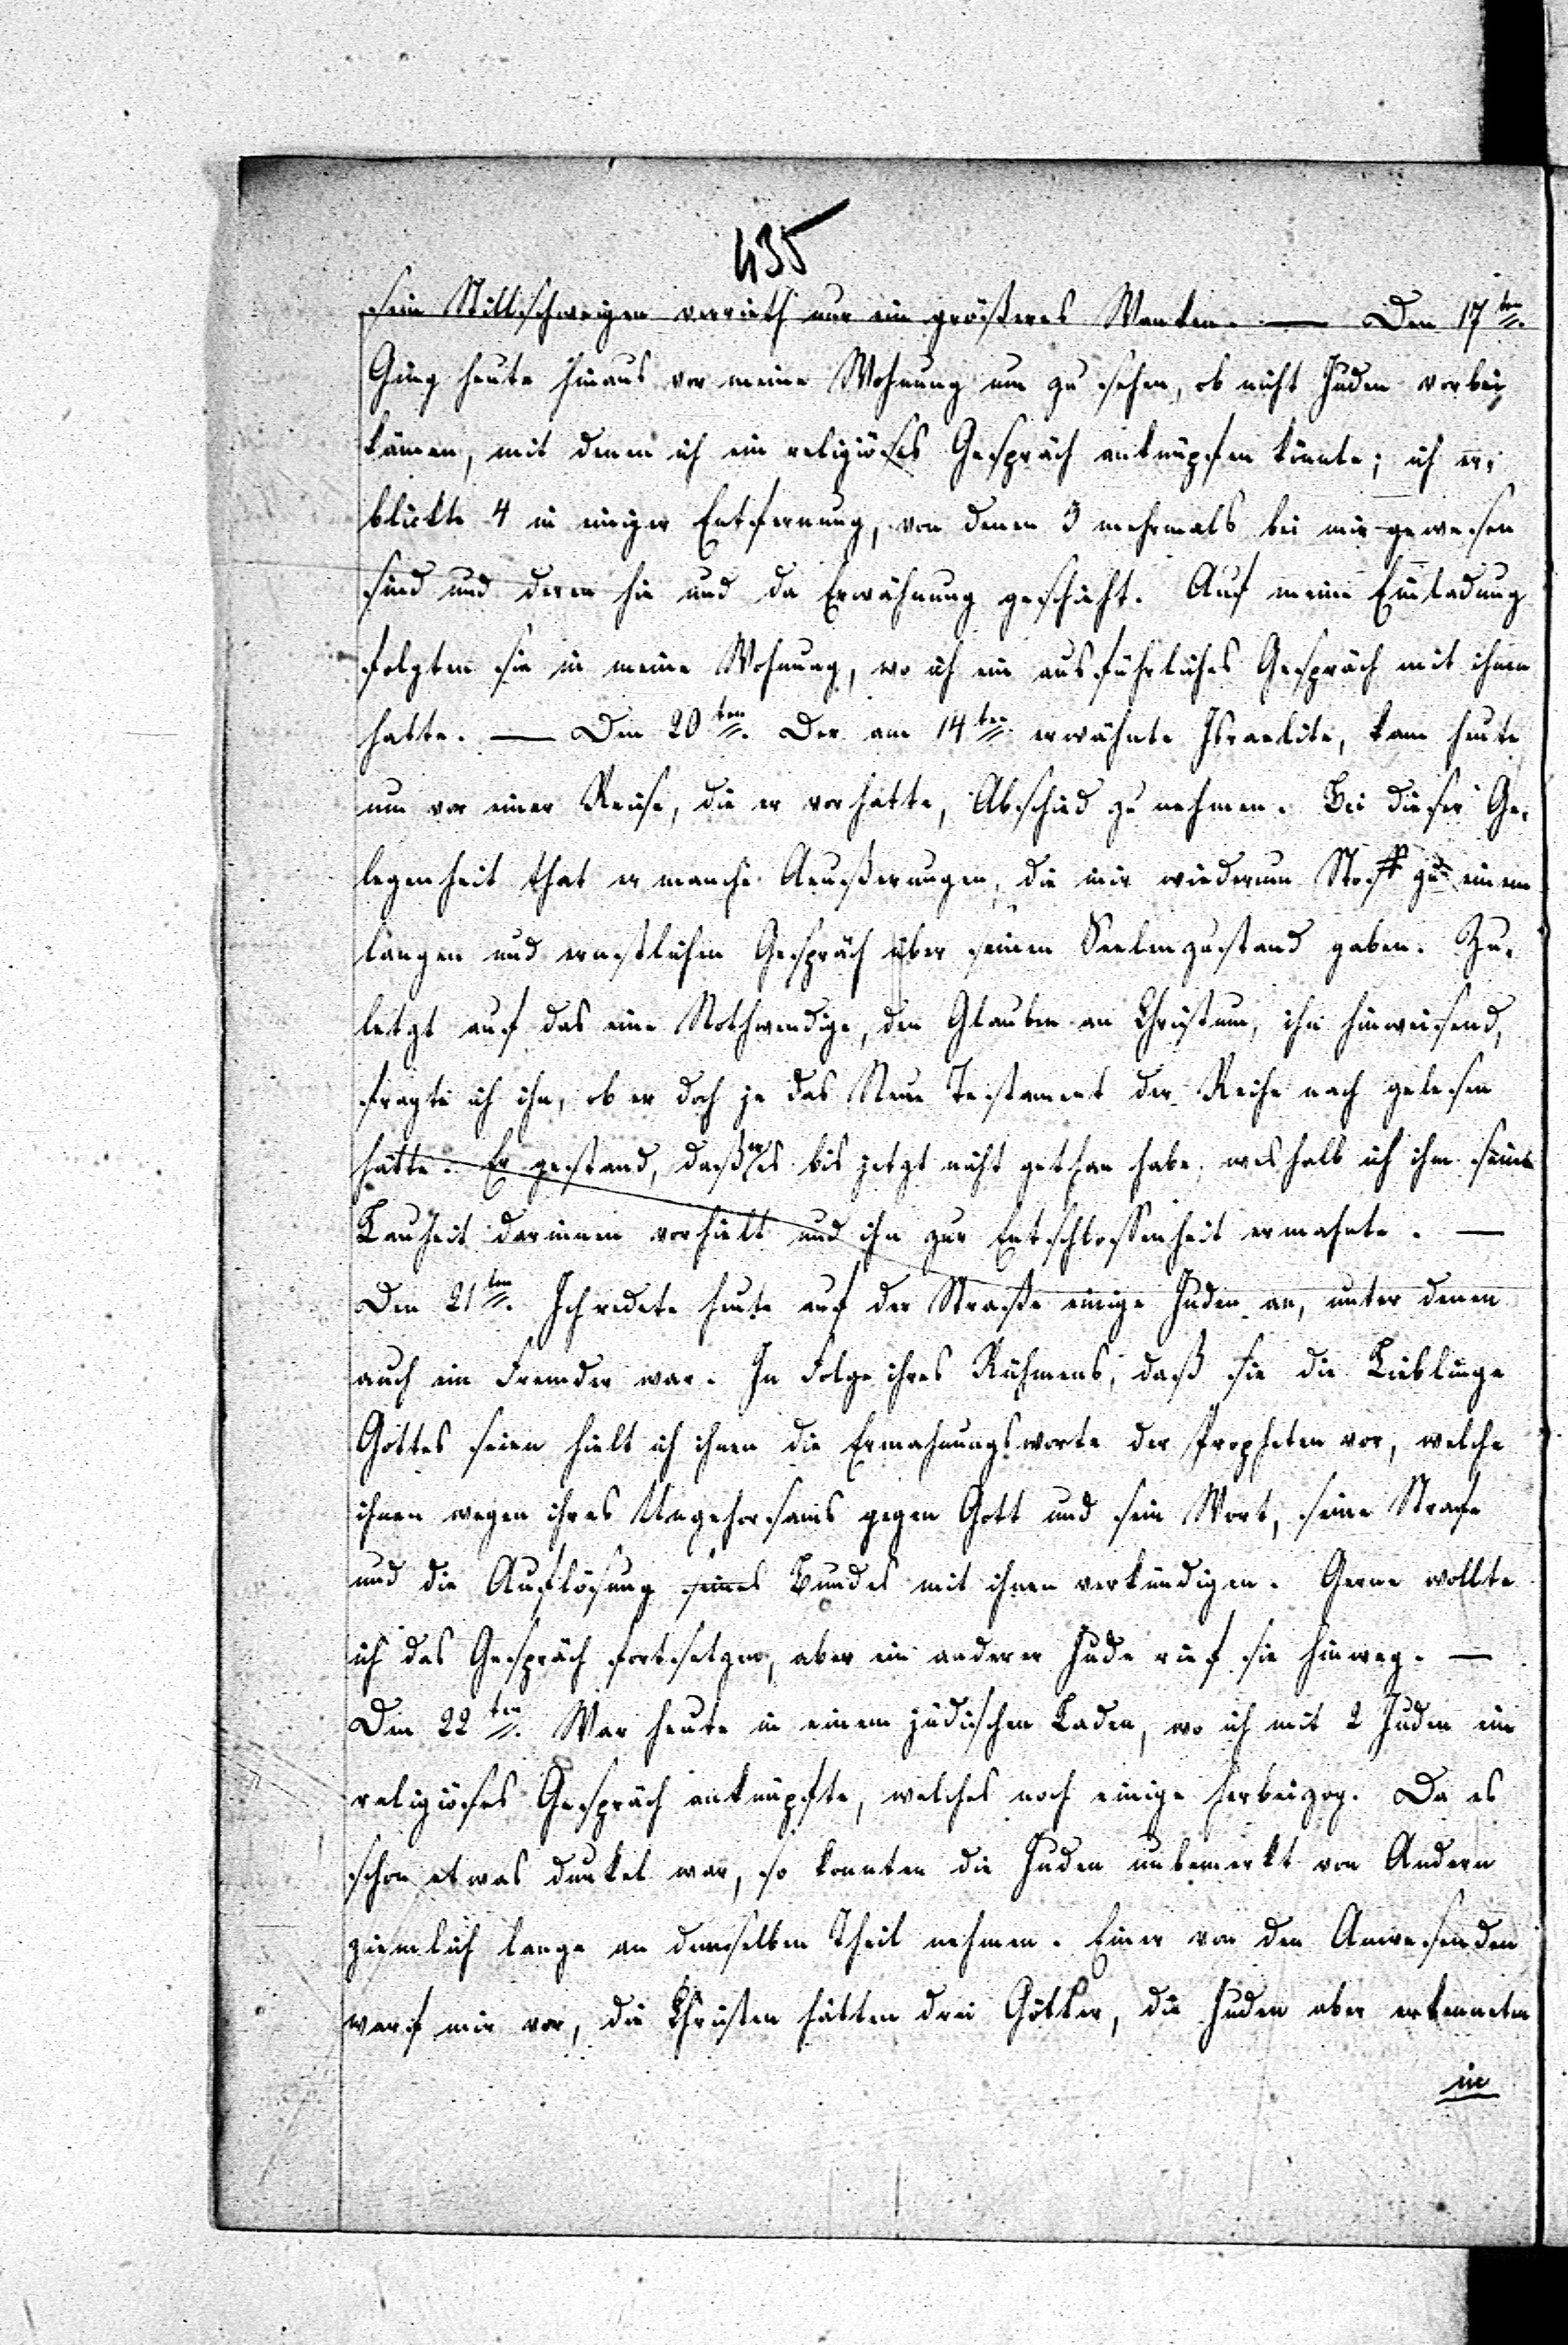 435
sein Stillschweigen verrieth nur ein größeres Wanken. — Den 17ten.
Ging heute hinaus vor meine Wohnung um zu sehen, ob nicht Juden vorbei
kämen, mit denen ich ein religiöses Gespräch anknüpfen könnte; ich er-
blickte 4 in einiger Entfernung, von denen 3 mehrmals bei mir gewesen
sind und deren hie und da Erwähnung geschieht. Auf meine Einladung
folgten sie in meine Wohnung, wo ich ein ausführliches Gespräch mit ihnen
hatte. — Den 20ten. Der am 14ten erwähnte Israelite, kam heute
um vor einer Reise, die er vorhatte, Abschied zu nehmen. Bei dieser Ge-
legenheit that er manche Aeußerungen, die mir wiederum Stoff zu einem
langen und ernstlichen Gespräch über seinen Seelenzustand gaben. Zu-
letzt auf das eine Nothwendige, den Glauben an Christum, ihn hinweisend,
fragte ich ihn, ob er doch je das Neue Testament der Reihe nach gelesen
hätte. Er gestand, daß er es bis jetzt nicht gethan habe, weshalb ich ihm seine
Lauheit darinnen vorhielt und ihn zur Entschlossenheit ermahnte. —
Den 21ten. Ich redete heute auf der Straße einige Juden an, unter denen
auch ein Fremder war. In Folge ihres Rühmens, daß sie die Lieblinge
Gottes seien hielt ich ihnen die Ermahnungsworte der Propheten vor, welche
ihnen wegen ihres Ungehorsams gegen Gott und sein Wort, seine Strafe
und die Auflösung seines Bundes mit ihnen verkündigen. Gerne wollte
ich das Gespräch fortsetzen, aber ein anderer Jude rief sie hinweg. —
Den 22ten. War heute in einem jüdischen Laden, wo ich mit 2 Juden ein
religiöses Gespräch anknüpfte, welches noch einige herbeizog. Da es
schon etwas dunkel war, so konnten die Juden unbemerkt von Andern
ziemlich lange an demselben Theil nehmen. Einer von den Anwesenden
warf mir vor, die Christen hätten drei Götter, die Juden aber erkenneten
in